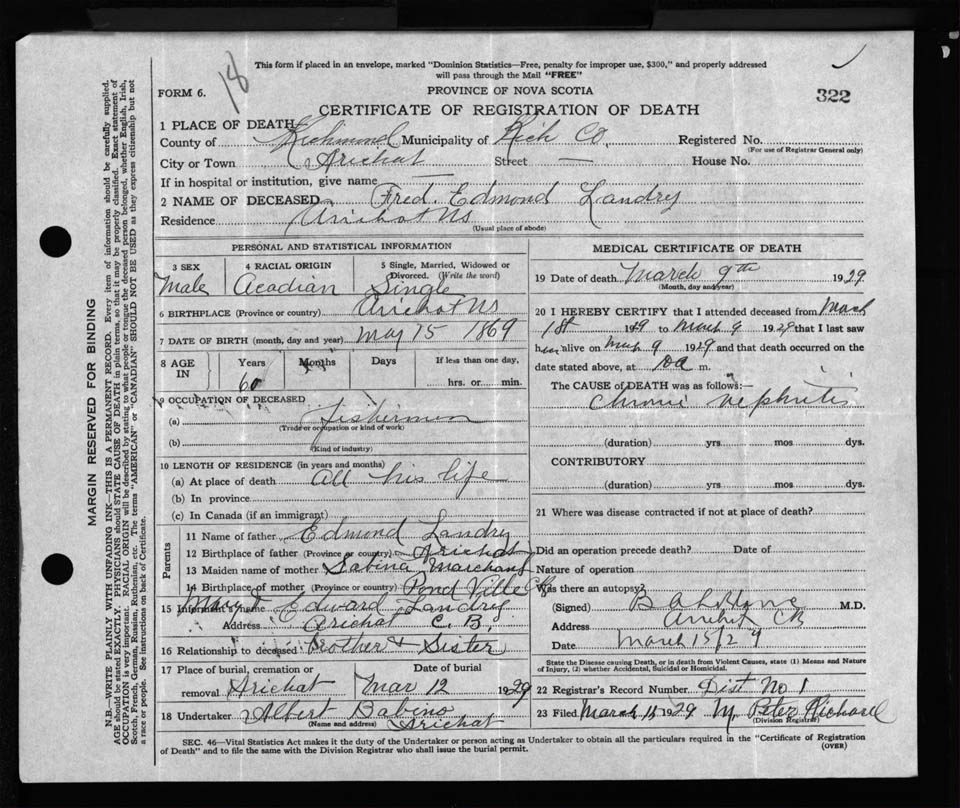 18
This form if placed in an envelope, marked "Dominion Statistics—Free, penalty for improper use, $300," and properly addressed
will pass through the Mail "FREE"
FORM 6.
PROVINCE OF NOVA SCOTIA
322
CERTIFICATE OF REGISTRATION OF DEATH
1 PLACE OF DEATH
County of Richmond Municipality of Rich Co. Registered No.
(For use of Registrar General only)
City or Town Arichat Street — House No.
If in hospital or institution, give name —
2 NAME OF DECEASED Fred. Edmond Landry
Residence Arichat NS
(Usual place of abode)
PERSONAL AND STATISTICAL INFORMATION
3 SEX 4 RACIAL ORIGIN 5 Single, Married, Widowed or
Divorced. (Write the word)
Male Acadian Single
6 BIRTHPLACE (Province or country) Arichat NS
7 DATE OF BIRTH (month, day and year) May 15 1869
8 AGE IN Years Months Days If less than one day,
60 hrs. or min.
9 OCCUPATION OF DECEASED
(a) Fisherman
(Trade or occupation or kind of work)
(b)
(Kind of industry)
10 LENGTH OF RESIDENCE (in years and months)
(a) At place of death All his life
(b) In province
(c) In Canada (if an immigrant)
Parents
11 Name of father Edmond Landry
12 Birthplace of father (Province or country) Arichat
13 Maiden name of mother Sabina Marchand
14 Birthplace of mother (Province or country) Pond Ville CB
15 Informant's name Edward Landry
Address Arichat C. B
16 Relationship to deceased Brother & Sister
17 Place of burial, cremation or Date of burial
removal Arichat Mar 12 1929
18 Undertaker Albert Babino
(Name and address) Arichat
MEDICAL CERTIFICATE OF DEATH
19 Date of death March 9th 1929
(Month, day and year)
20 I HEREBY CERTIFY that I attended deceased from March
1st 1929 to March 9 1929 that I last saw
him alive on Mar 9 1929 and that death occurred on the
date stated above, at m.
The CAUSE of DEATH was as follows:—
Chronic nephritis
(duration) yrs mos dys.
CONTRIBUTORY
(duration) yrs. mos dys.
21 Where was disease contracted if not at place of death?
Did an operation precede death? Date of
Nature of operation
Was there an autopsy?
(Signed) M.D.
Address Arichat CB
Date March 15/29
State the Disease causing Death, or in death from Violent Causes, state (1) Means and Nature
of Injury, (2) whether Accidental, Suicidal or Homicidal.
22 Registrar's Record Number Dist No 1
23 Filed March 1929 M Peter Richard
(Division Registrar)
SEC. 46—Vital Statistics Act makes it the duty of the Undertaker or person acting as Undertaker to obtain all the particulars required in the "Certificate of Registration
of Death" and to file the same with the Division Registrar who shall issue the burial permit.
(OVER)
MARGIN RESERVED FOR BINDING
N.B.—WRITE PLAINLY WITH UNFADING INK—THIS IS A PERMANENT RECORD. Every item of information should be carefully supplied.
AGE should be stated EXACTLY. PHYSICIANS should STATE CAUSE OF DEATH in plain terms, so that it may be properly classified. Exact statement of
OCCUPATION is very important. RACIAL ORIGIN will be described by stating to what people or tongue the deceased person belonged, whether English, Irish,
Scotch, French, German, Russian, Ruthenian, etc. The terms "AMERICAN" or "CANADIAN" SHOULD NOT BE USED as they express citizenship but not
a race or people. See instructions on back of Certificate.